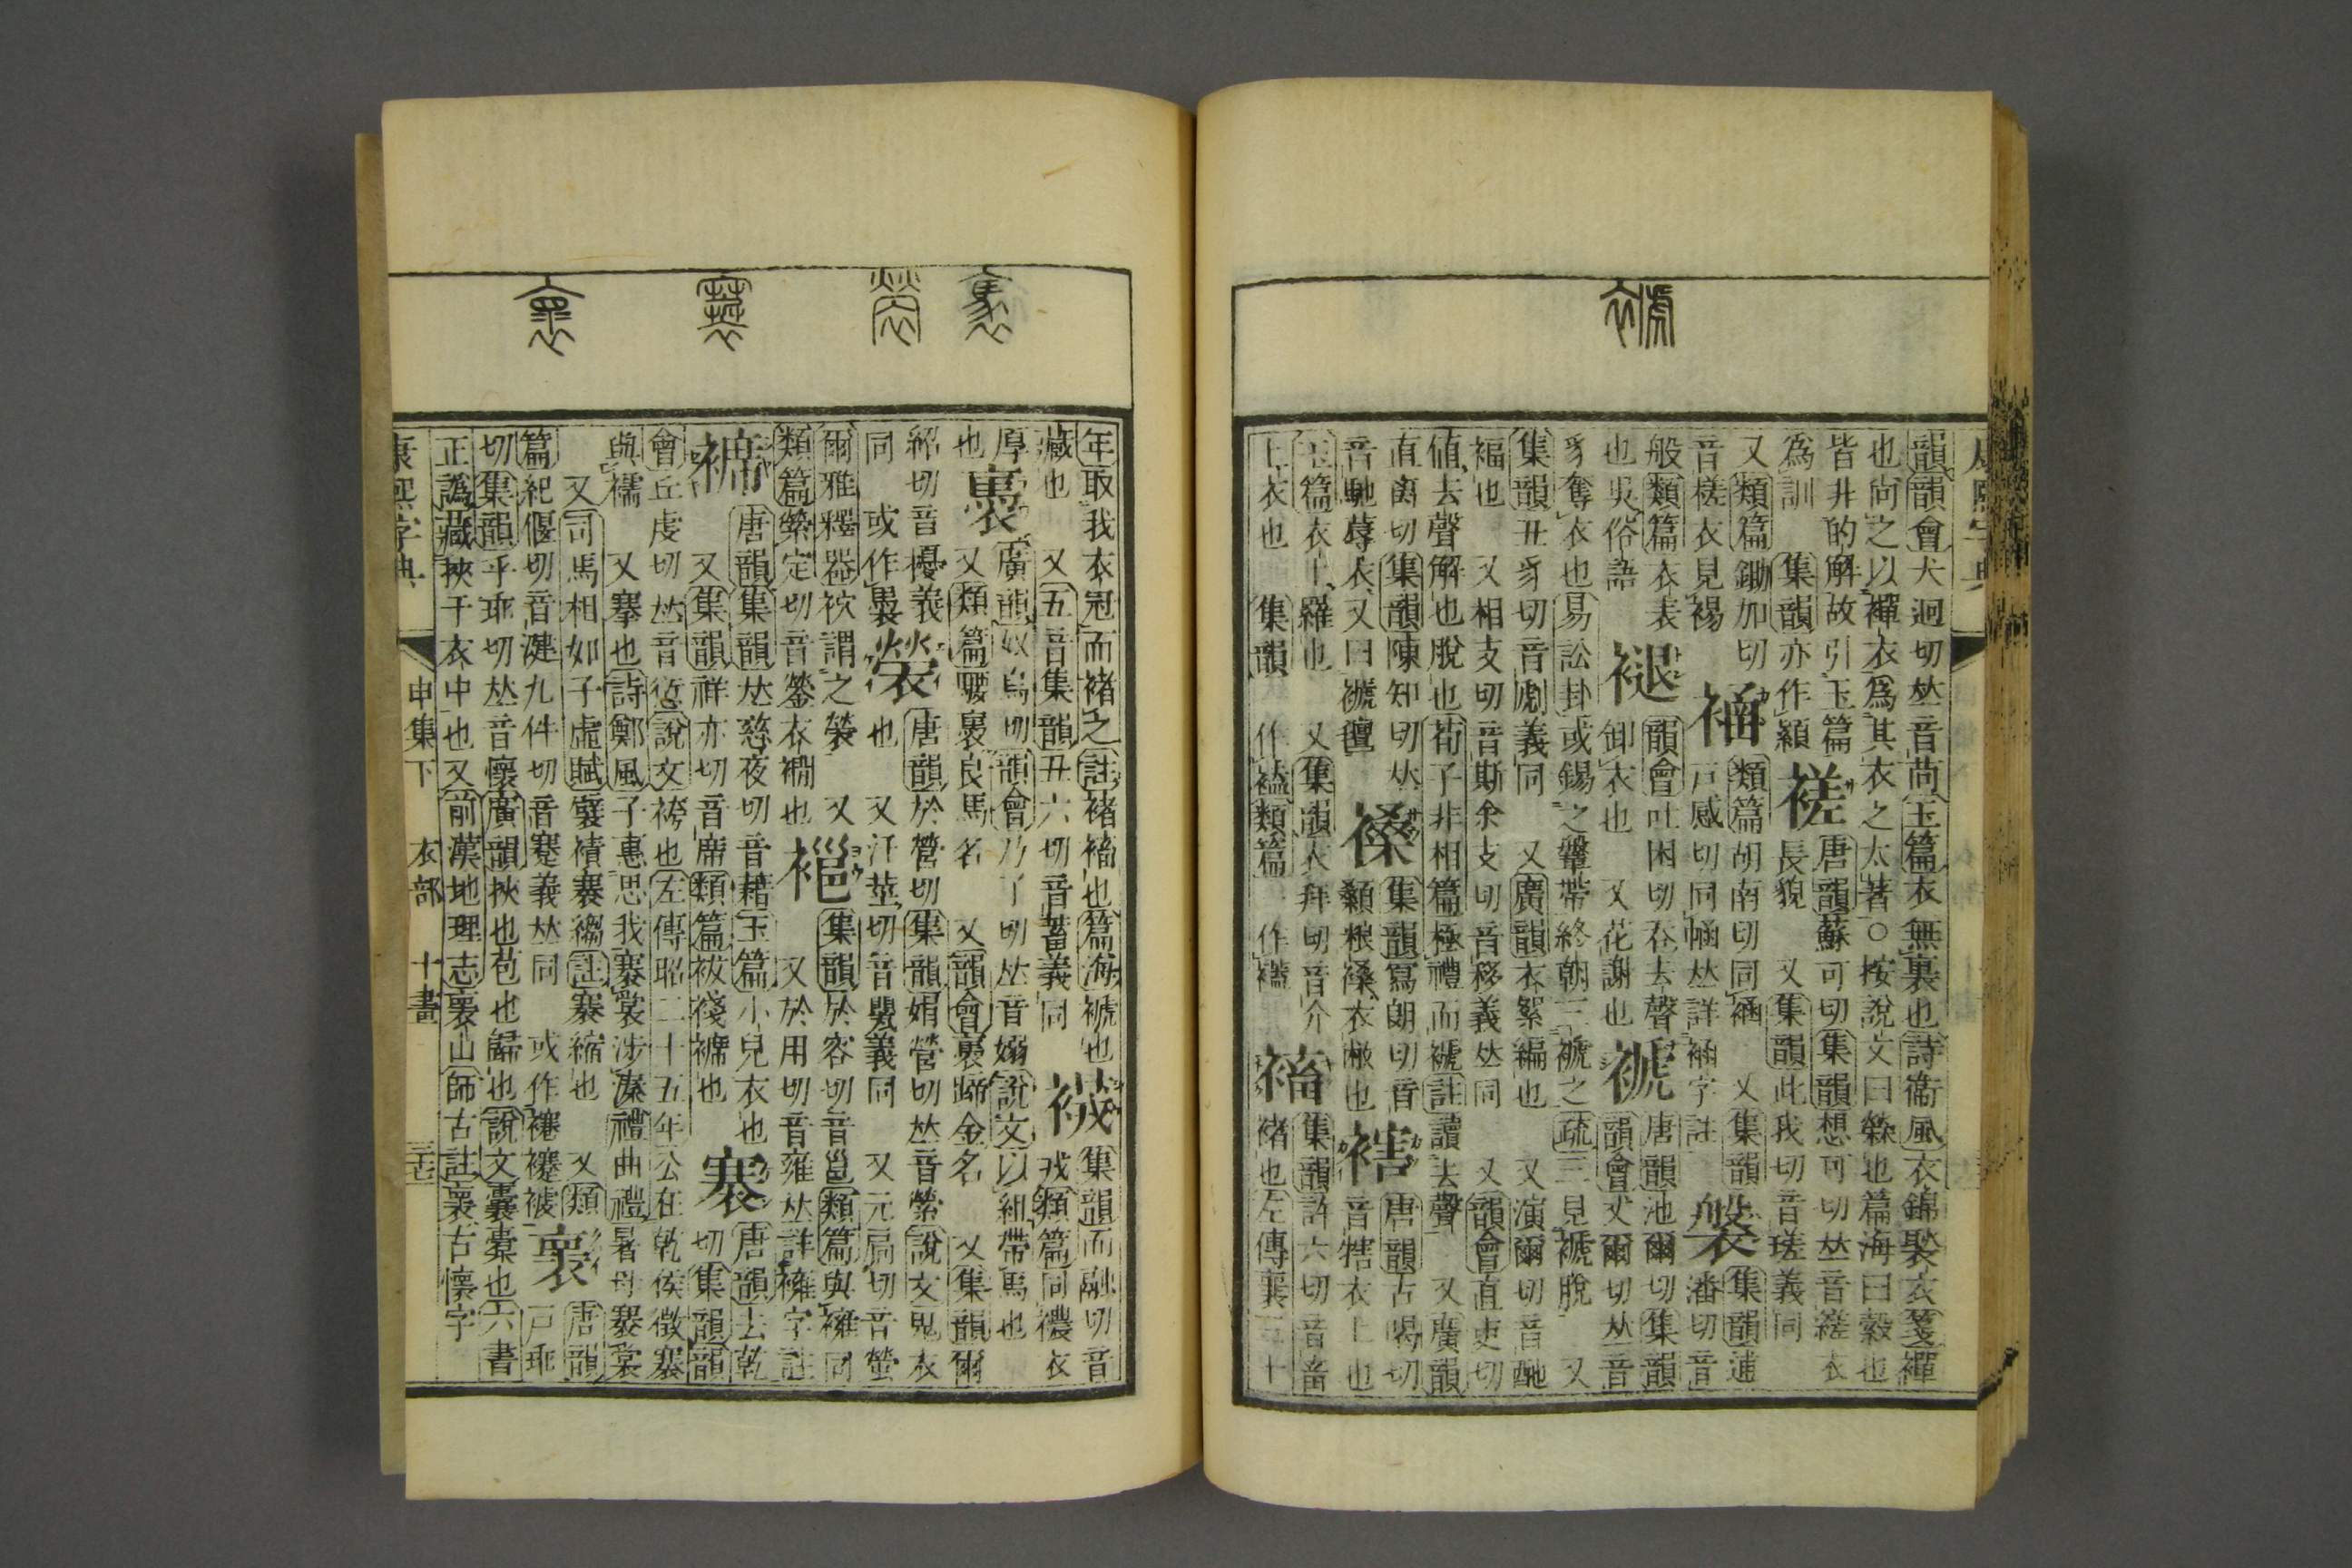 韻韻會犬迥切𠀤音苘玉篇衣無裏也詩衞風衣錦褧衣箋襌
也尚之以襌衣爲其衣之太著○按說文曰檾也篇海曰縠也
皆非的解故引玉篇 褨唐韻蘇可切集韻想可切𠀤音縒衣
爲訓 集韻亦作䫂 長貌 又集韻此我切音瑳義同
又類篇鋤加切 類篇胡南切同𧛕 又集韻 褩集韻逋
音槎衣見裼 戸感切同㡔𠀤詳䄜字註 潘切音
般類篇衣表 褪韻會吐困切吞去聲 褫唐韻池爾切集韻
也吳俗語 卸衣也 又花謝也 韻會丈爾切𠀤音
豸奪衣也易訟卦或錫之鞶帶終朝三褫之疏三見褫脫 又
集韻丑豸切音劘義同 又廣韻衣絮褊也 又演爾切音酏
福也 又相支切音斯余支切音移義𠀤同 又韻會直吏切
值去聲解也脫也荀子非相篇極禮而褫註讀去聲 又廣韻
直离切集韻陳知切𠀤 褬集韻寫朗切音 褣唐韻古曷切
音馳蓐衣又曰褫氊 顙粮褬衣敝也 音犗衣上也
玉篇衣上羅也 又集韻衣拜切音介 稸集韻許六切音畜
上衣也 集韻 作䙅類篇 作䙪 褚也左傳襄三十
年取我衣冠而褚之註褚稸也篇海褫也 集韻而融切音
藏也 又五音集韻丑六切音蓄義同 戎類篇同襛衣
厚 褭廣韻奴鳥切韻會乃了切𠀤音嫋說文以組帶馬也
也 又類篇騕褭良馬名 又韻會褭蹏金名 又集韻爾
紹切音擾義 褮唐韻於營切集韻娟營切𠀤音縈說文鬼衣
同 或作䙚 也 又汙莖切音甖義同 又元扃切音螢
爾雅釋器袕謂之褮 又 𧜗集韻於容切音邕類篇與𧞤同
類篇縈定切音鎣衣襉也 又於用切音雍𠀤詳𧞤字註
𧜟唐韻集韻𠀤慈夜切音藉玉篇小兒衣也 褰唐韻去乾
又集韻祥亦切音席類篇袚襏𧜟也 切集韻韻
會丘虔切𠀤音愆說文袴也左傳昭二十五年公在乾侯徵褰
與襦 又搴也詩鄭風子惠思我褰裳涉溱禮曲禮暑毋褰裳
又司馬相如子虛賦襞積褰縐註褰縮也 又類
篇紀偃切音湕九件切音蹇義𠀤同 或作攐襷㩃 褱唐韻戸乖
切集韻乎乖切𠀤音懷廣韻挾也苞也歸也說文囊橐也六書
正譌藏挾于衣中也又前漢地理志褱山師古註褱古懷字
康熙字典 申集下 衣部 十畫